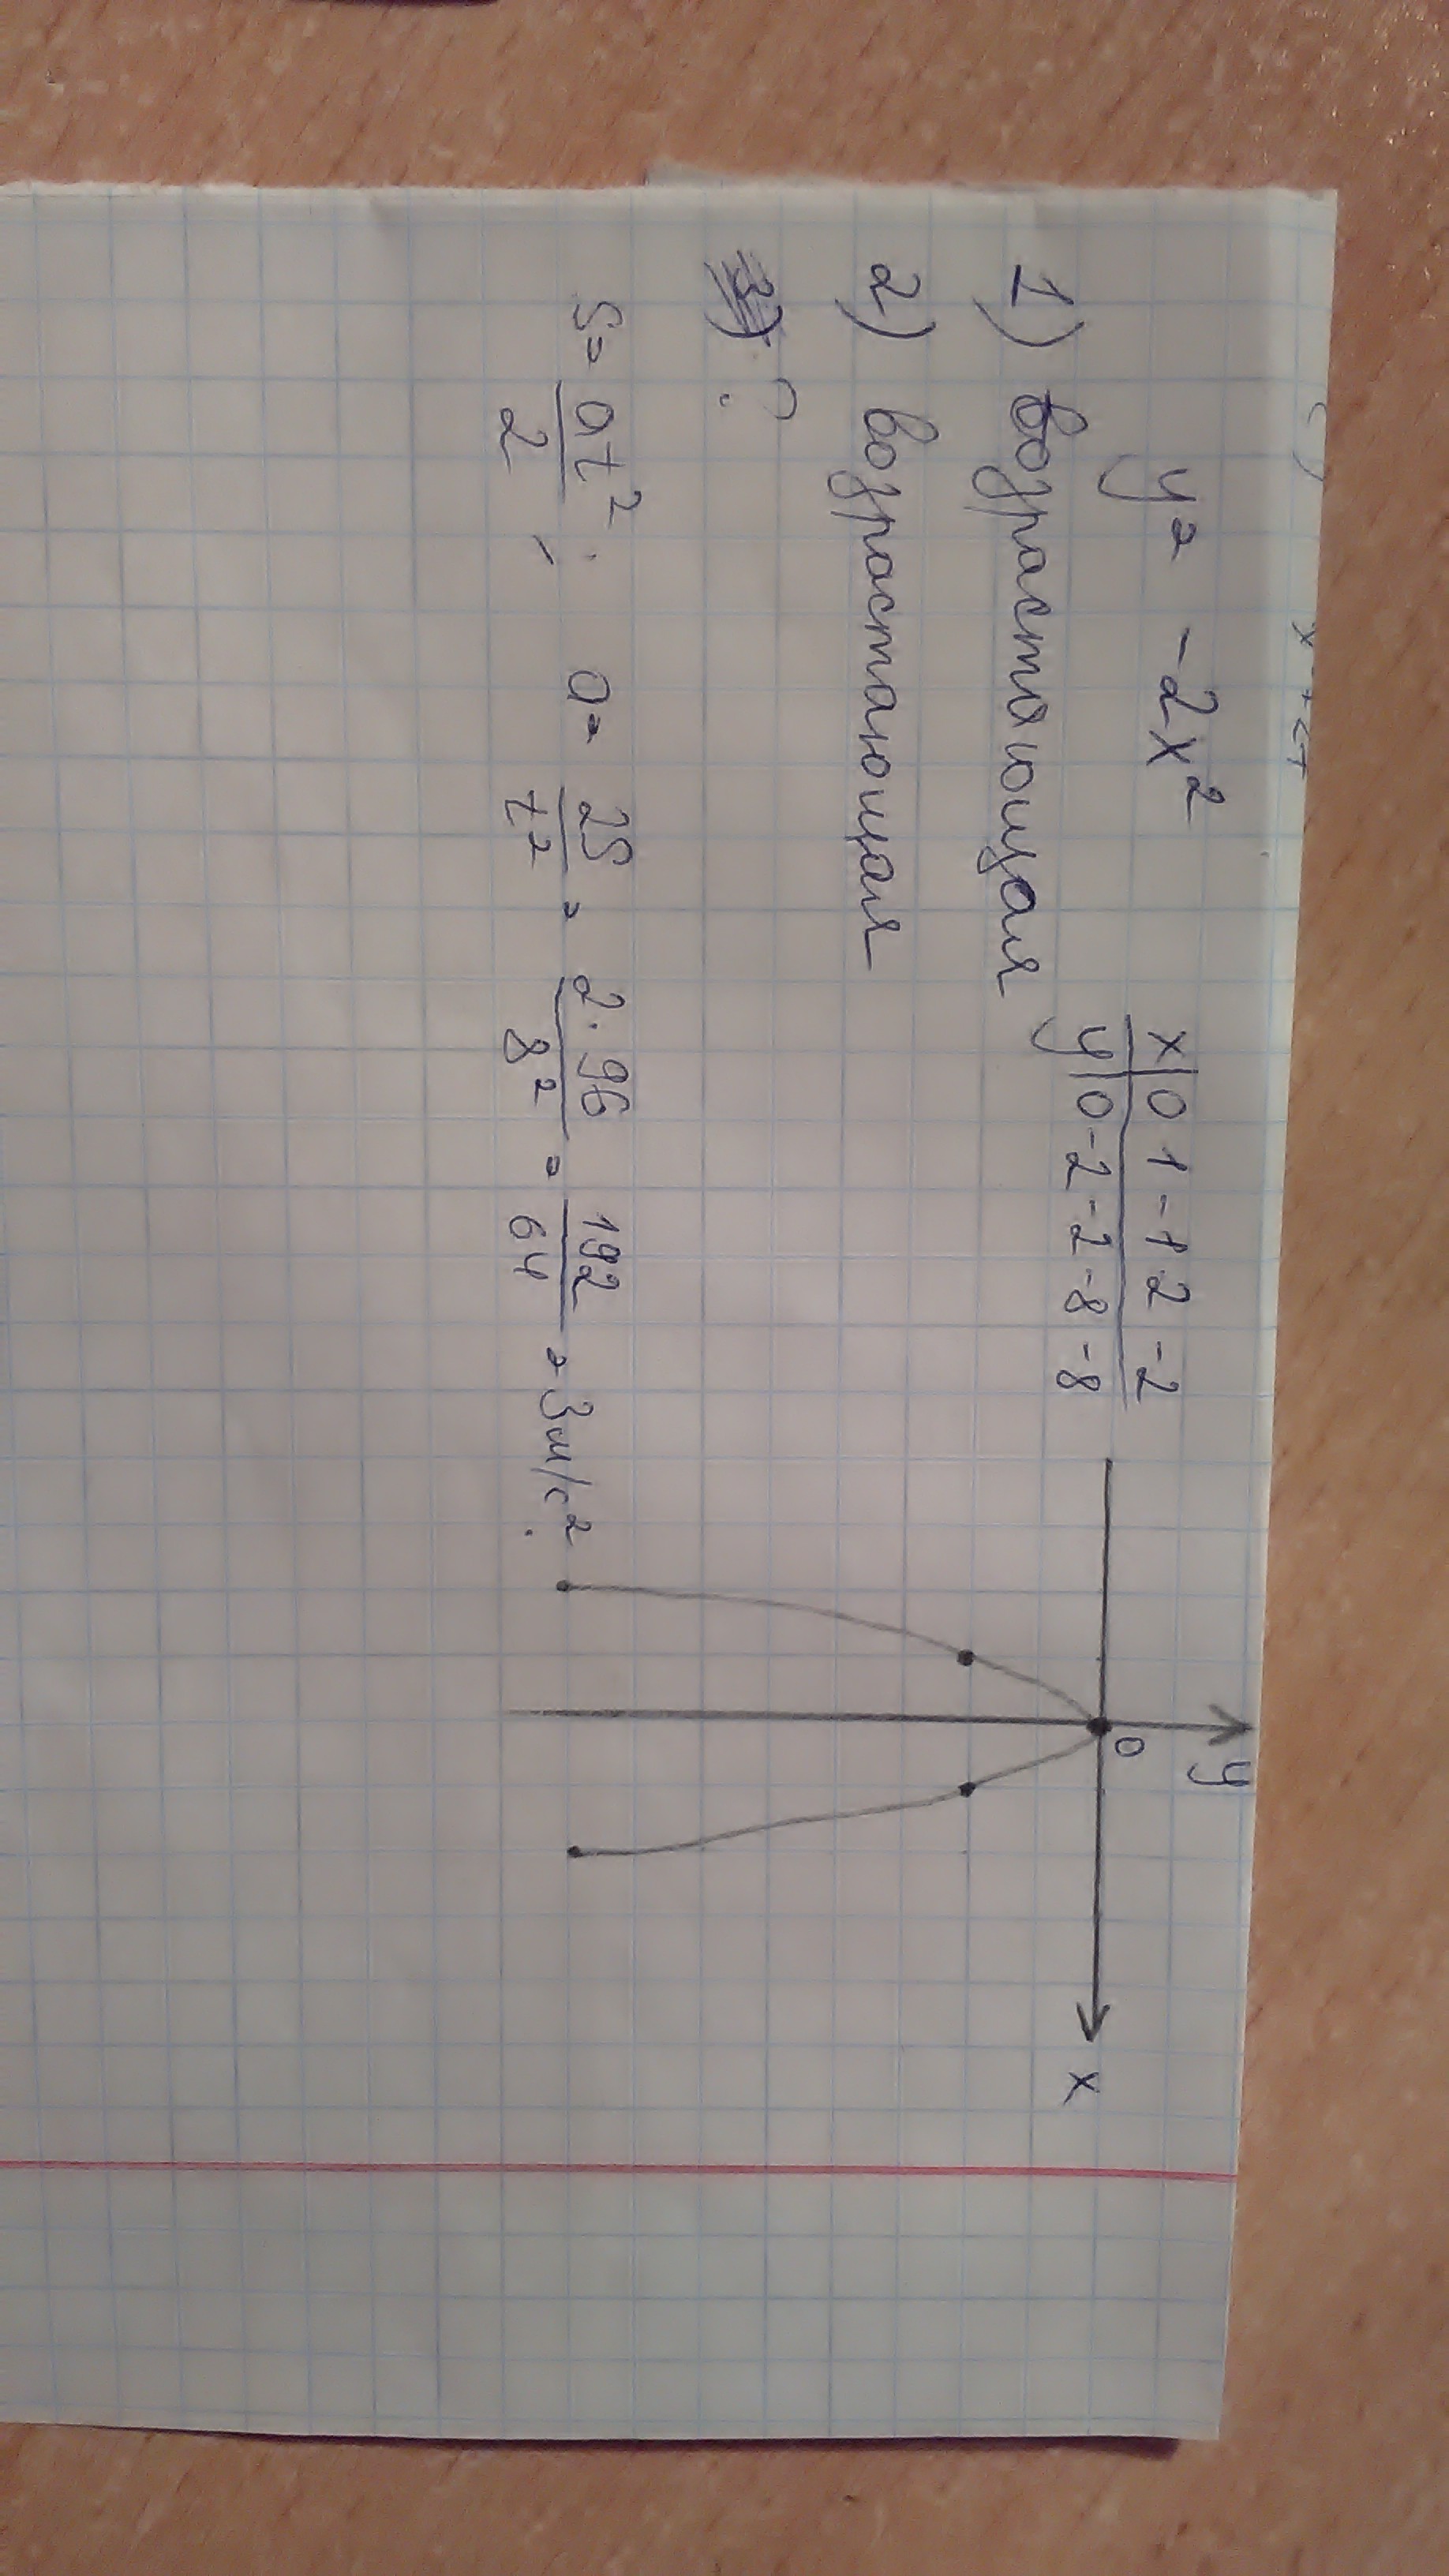 y = -2x²
x | 0 1 -1 2 -2
y | 0 -2 -2 -8 -8
y
0
x
1) возрастающая
2) возрастающая
3) ?
S = at²/2 ; a = 2S/t² = 2·96/8² = 192/64 = 3 м/с².